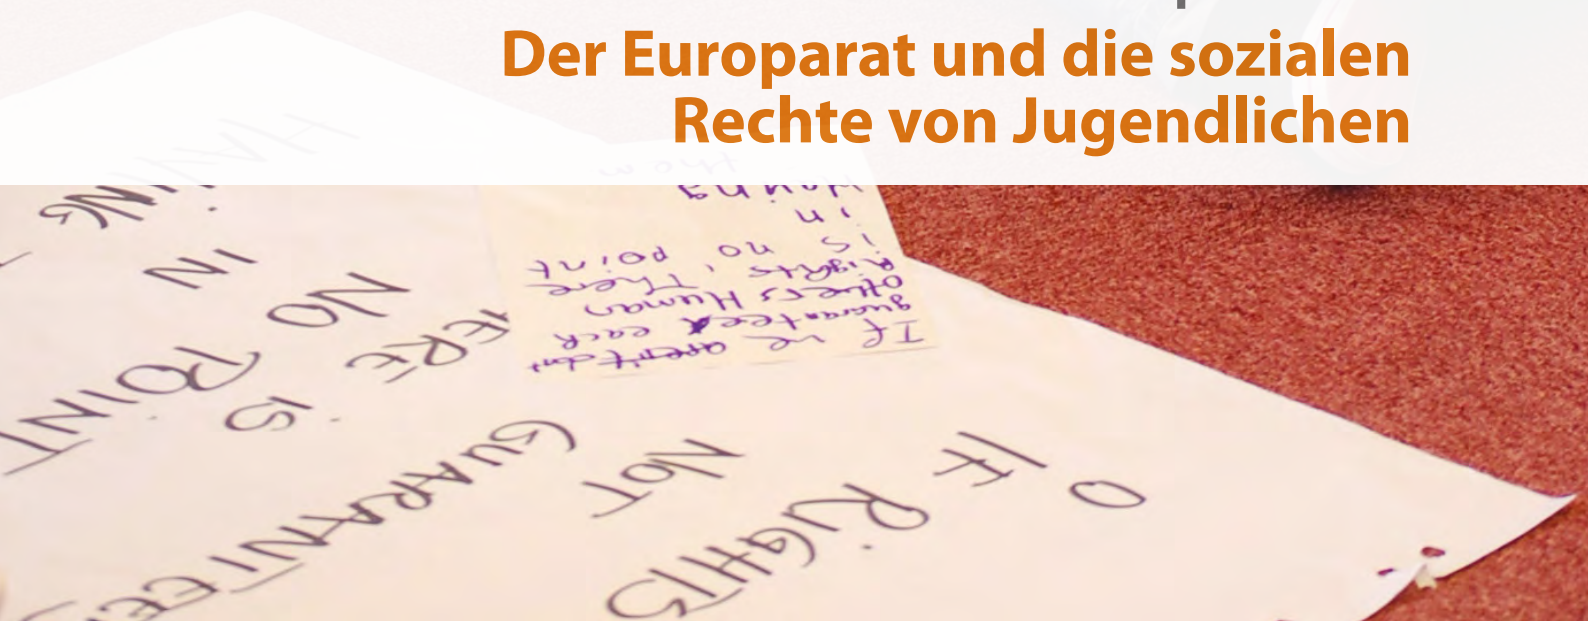 Der Europarat und die sozialen
Rechte von Jugendlichen
O IF RIGHTS
NOT GUARANTEED
THERE IS
NO POINT
IN
HAVING
If we don't
guarantee each
others Human
Rights, There
is no point
in
Having
them